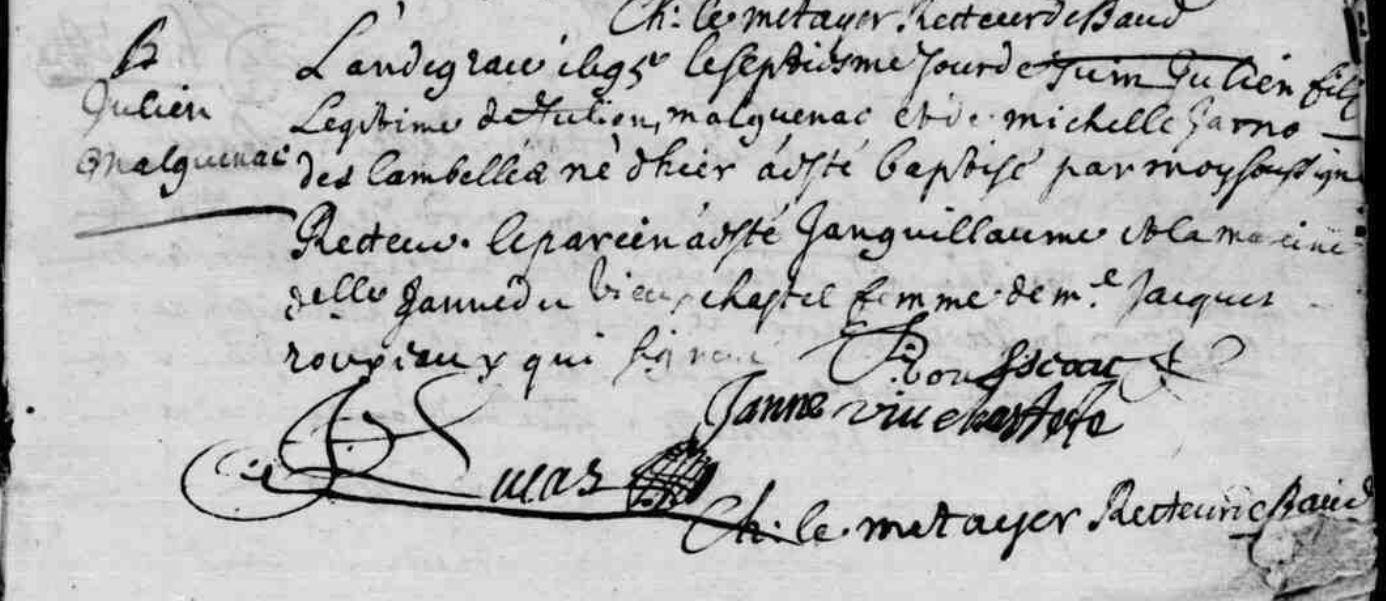 Ch: le metayer Recteur de Baud
B
Julien
Malguenac
L'an de grace le septiesme jour de Juin Julien fils
Legitime de Julien malguenac et de michelle Jarno
des Cambellea né d'hier a esté baptisé par moy soussign
Recteur. le parein a esté Jan guillaume et la mareine
delle Janne du vieux chastel femme de m.e Jacques
rouxiaux qui signent
Janne viuechastele
Lucas
Ch: le metayer Recteur de Baud